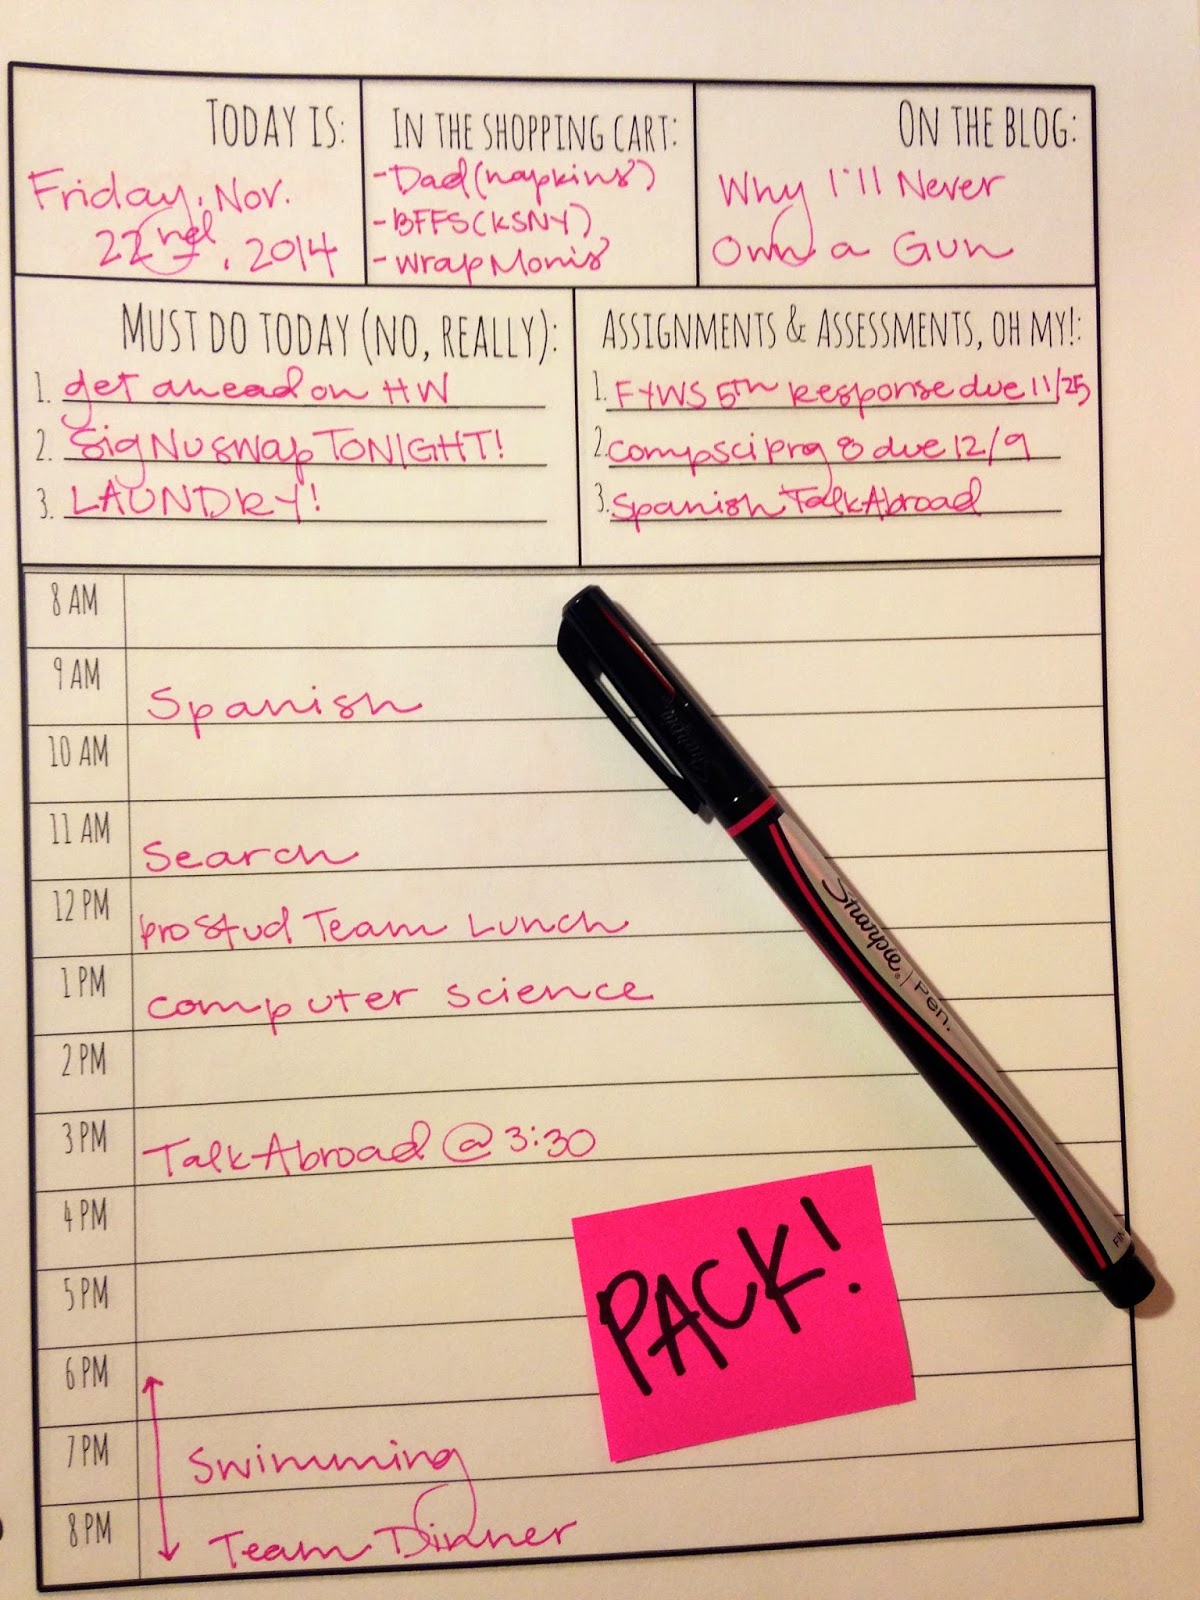 TODAY IS:
Friday, Nov.
22nd, 2014
IN THE SHOPPING CART:
-Dad(napkins)
-BFFS(KSNY)
-wrap Moms
ON THE BLOG:
Why I'll Never
Own a Gun
MUST DO TODAY (NO, REALLY):
1. get ahead on HW
2. Sig Nu swap TONIGHT!
3. LAUNDRY!
ASSIGNMENTS & ASSESSMENTS, OH MY!:
1. FYWS 5th Response due 11/25
2. compsci prg 8 due 12/9
3. Spanish TalkAbroad
8 AM
9 AM Spanish
10 AM
11 AM Search
12 PM pro Stud Team Lunch
1 PM computer science
2 PM
3 PM TalkAbroad @ 3:30
4 PM
5 PM
6 PM
7 PM Swimming
8 PM Team Dinner
PACK!
Sharpie
Sharpie. | Pen.
FIN